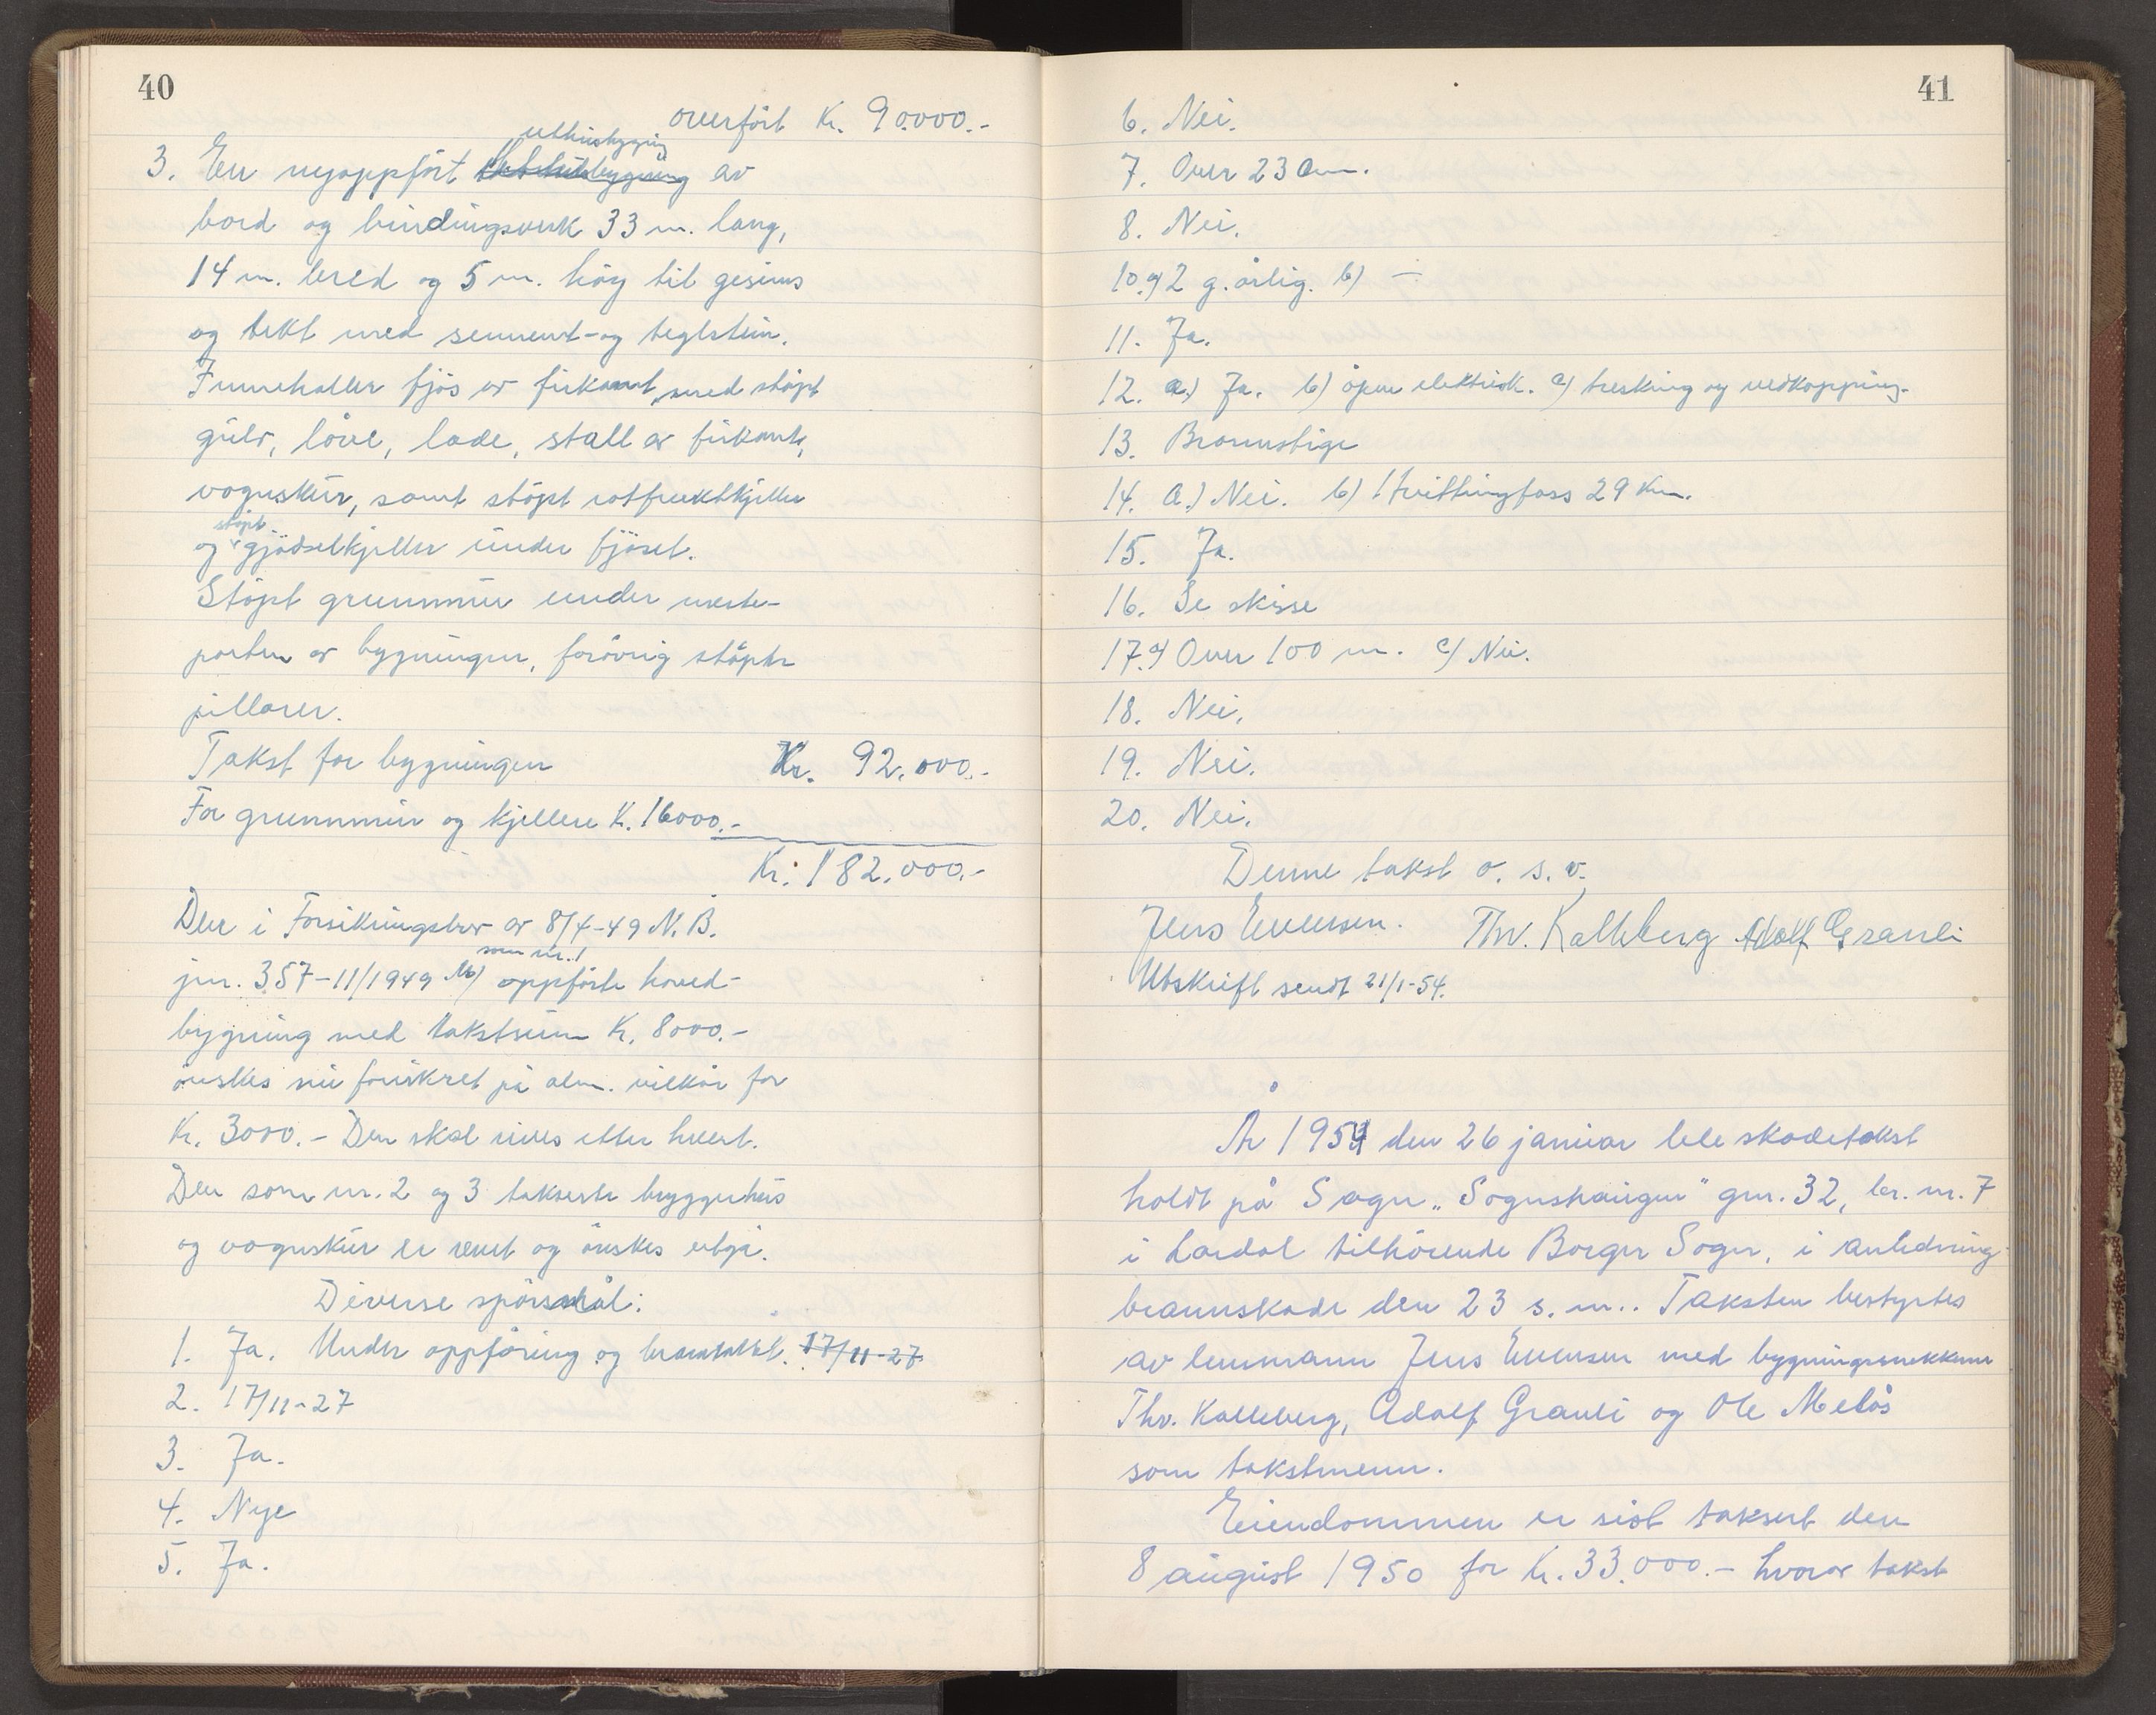 40
overfört Kr. 90.000.-
uthusbygning
3. En nyoppfört av
bord og bindingsverk 33 m. lang,
14 m. bred og 5 m. höy til gesims
og tekt med sement- og teglstein.
Inneholder fjös av firkant, med stöpt
gulv, låve, lade, stall av firkant,
vognskur, samt stöpt rotfruktkjeller
stöpt
og gjödselkjeller under fjöset.
Stöpt grunnmur under meste-
parten av bygningen, forövrig stöpte
pillarer.
Takst for bygningen Kr. 92.000.-
For grunnmur og kjellere K. 16000.-
Kr. 182.000.-
Den i Forsikringsbrev av 8/4-49 N.B.
som nr. 1
jnr. 357-11/1949 oppförte hoved-
bygning med takstsum Kr. 8000.-
önskes nu forsikret på alm. vilkår for
Kr. 3000.- Den skal rives etter hvert.
Den som nr. 2 og 3 takserte bryggerhus
og vognskur er revet og önskes utgå.
Diverse spörsmål:
1. Ja. Under oppföring og branntakst. 17/11-27
2. 17/11-27
3. Ja.
4. Nye
5. Ja.
41
6. Nei.
7. Over 23 cm.
8. Nei.
10. a) 2 g. årlig. b) —
11. Ja.
12. a.) Ja. b) åpen elektrisk. c) tresking og vedkapping.
13. Brannstige
14. a.) Nei. b) Hvittingfoss 29 km.
15. Ja.
16. Se skisse
17. a) Over 100 m. c) Nei.
18. Nei.
19. Nei.
20. Nei.
Denne takst o. s. v.
Jens Evensen. Thv. Kalleberg Adolf Granli
Utskrift sendt 21/1-54.
År 1954 den 26 januar ble skadetakst
holdt på Sogn „Sognshaugen" gnr. 32, br. nr. 7
i Lardal tilhörende Borger Sogn, i anledning
brannskade den 23 s. m.. Taksten bestyrtes
av lensmann Jens Evensen med bygningssnekkerne
Thv. Kalleberg, Adolf Granli og Ole Melås
som takstmenn.
Eiendommen er sist taksert den
8 august 1950 for Kr. 33.000.- hvorav takst